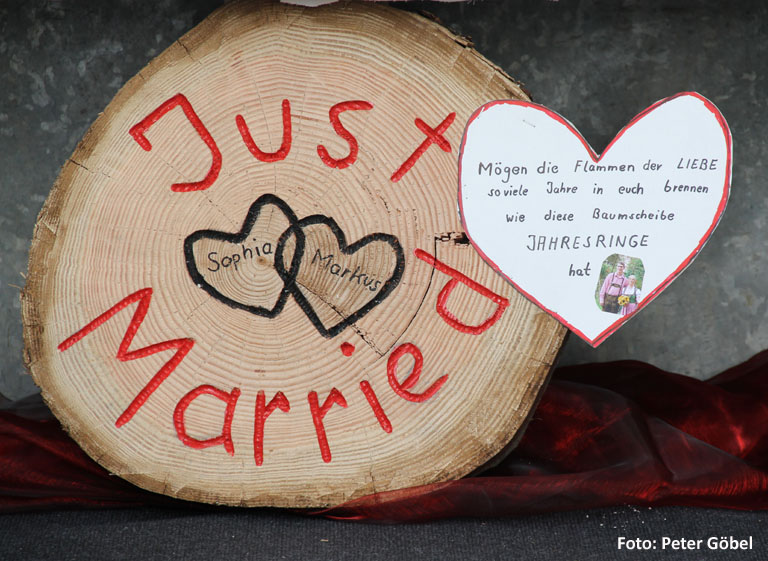 Just
Sophia
Markus
Married
Mögen die Flammen der LIEBE
soviele Jahre in euch brennen
wie diese Baumscheibe
JAHRESRINGE
hat
Foto: Peter Göbel